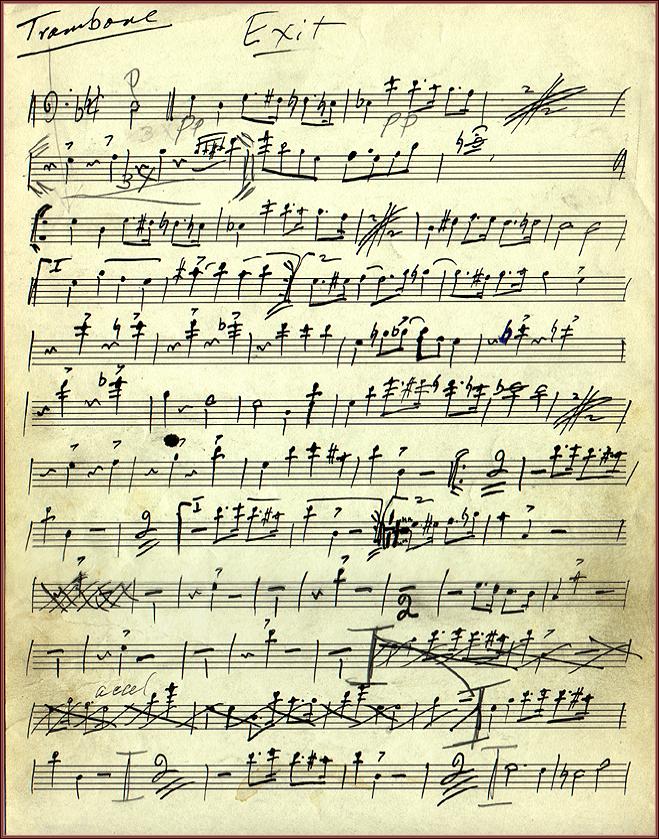 Trombone
Exit
P
3 x PP
PP
2
3x
2
I
2
2
2
2
I
2
2
accel
2
2